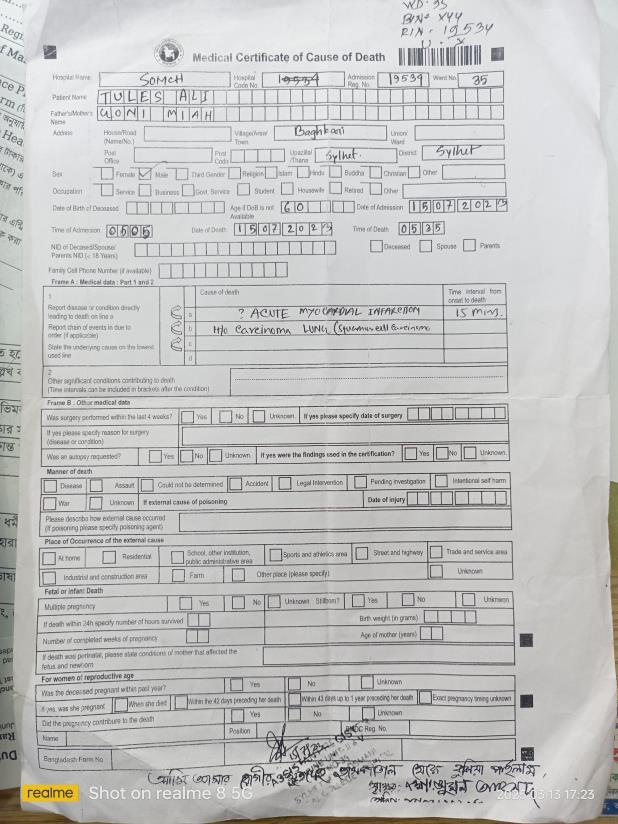 WD: 35
RIN: 19534
Medical Certificate of Cause of Death
Hospital Name SOMCH Hospital Code No. 19534 Admission Reg. No. 19534 Ward No. 35
Patient Name TULES ALI
Father's/Mother's Name GONI MIAH
Address House/Road (Name/No.) Village/Area/ Town Baghbari Union/ Ward
Post Office Post Code Upazilla/ /Thana Sylhet. District Sylhet
Sex Female Male Third Gender Religion Islam Hindu Buddha Christian Other
Occupation Service Business Govt. Service Student Housewife Retired Other
Date of Birth of Deceased Age if DoB is not Available 60 Date of Admission 15072023
Time of Admission 0505 Date of Death 15072023 Time of Death 0535
NID of Deceased/Spouse/ Parents NID (< 18 Years) Deceased Spouse Parents
Family Cell Phone Number (if available)
Frame A : Medical data : Part 1 and 2
1 Cause of death Time interval from onset to death
Report disease or condition directly leading to death on line a a ? ACUTE MYOCARDIAL INFARCTION 15 mins.
Report chain of events in due to order (if applicable) b H/o Carcinoma LUNG (Squamous cell Carcinoma
State the underlying cause on the lowest used line c
d
2
Other significant conditions contributing to death
(Time intervals can be included in brackets after the condition)
Frame B : Other medical data
Was surgery performed within the last 4 weeks? Yes No Unknown If yes please specify date of surgery
If yes please specify reason for surgery (disease or condition)
Was an autopsy requested? Yes No Unknown If yes were the findings used in the certification? Yes No Unknown.
Manner of death
Disease Assault Could not be determined Accident Legal Intervention Pending investigation Intentional self harm
War Unknown If external cause of poisoning Date of injury
Please describe how external cause occurred
(If poisoning please specify poisoning agent)
Place of Occurrence of the external cause
At home Residential School, other institution, public administrative area Sports and athletics area Street and highway Trade and service area
Industrial and construction area Farm Other place (please specify) Unknown
Fetal or infant Death
Multiple pregnancy Yes No Unknown Stillborn? Yes No Unknown
If death within 24h specify number of hours survived Birth weight (in grams)
Number of completed weeks of pregnancy Age of mother (years)
If death was perinatal, please state conditions of mother that affected the fetus and newborn
For women of reproductive age
Was the deceased pregnant within past year? Yes No Unknown
If yes, was she pregnant When she died Within the 42 days preceding her death Within 43 days up to 1 year preceding her death Exact pregnancy timing unknown
Did the pregnancy contribute to the death Yes No Unknown
Name Position BMDC Reg. No.
Bangladesh Form No
realme Shot on realme 8 5G 2025·03·13 17:23